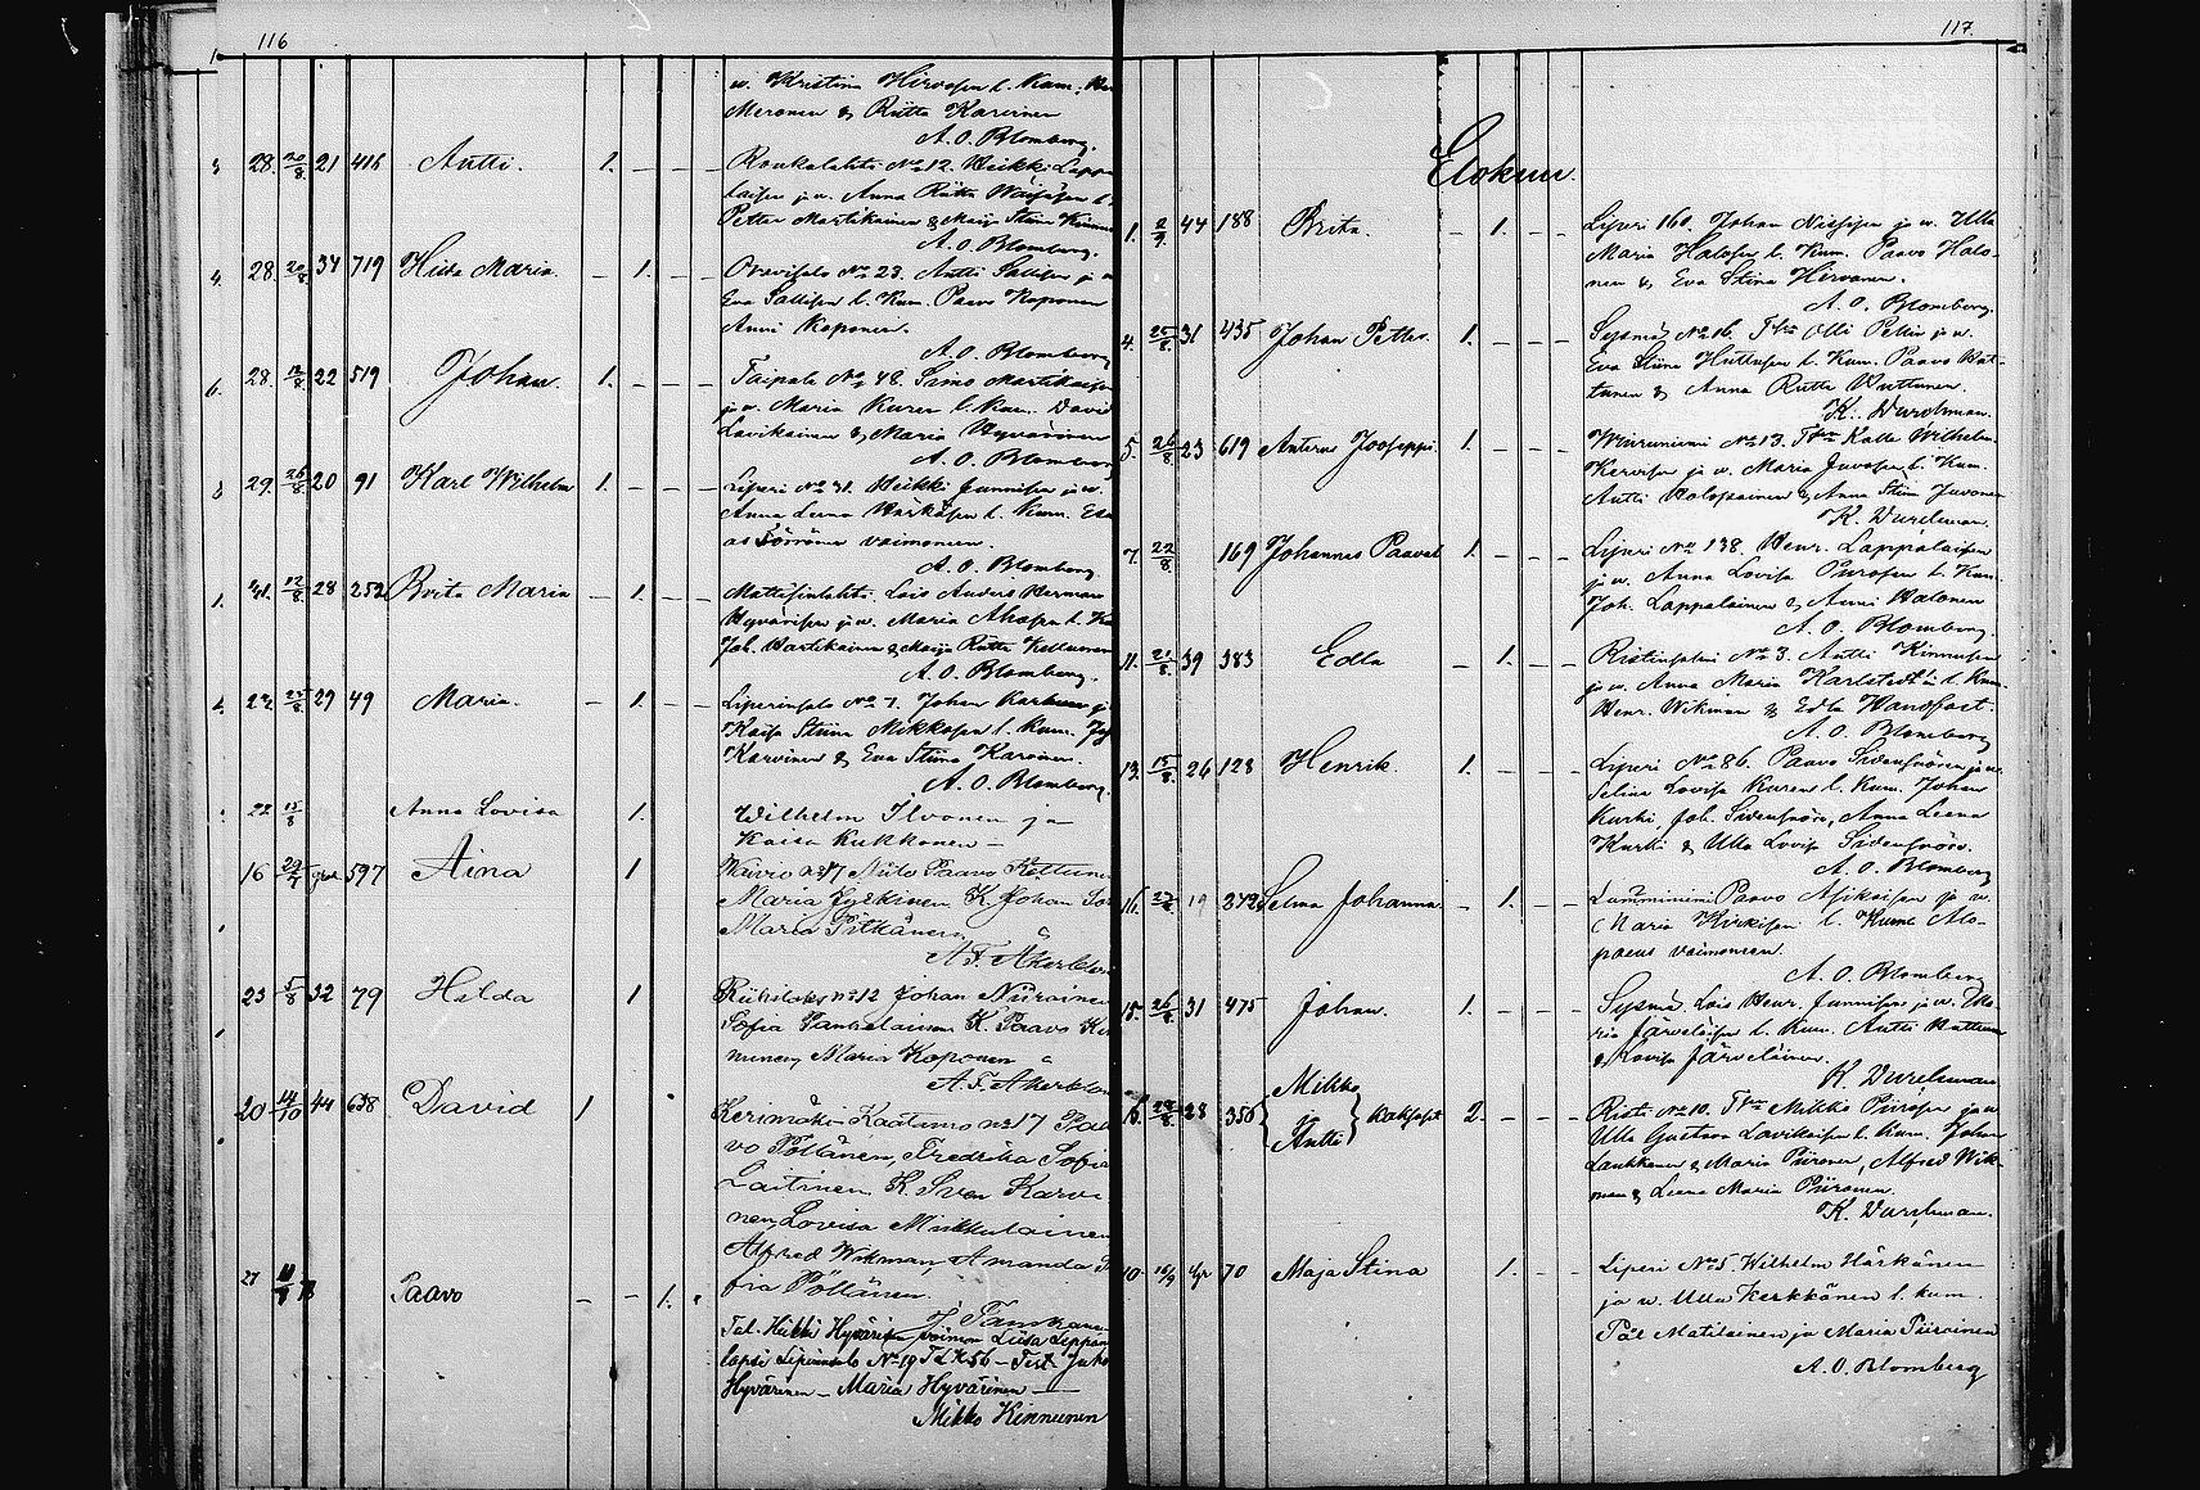 116
w. Kristina Hirvosen l. Kum.
Meronen & Riitta Karvinen
A. O. Blomberg.
28. 20/8. 21 416 Antti. 1. – – – Roukalahti No 12. Heikki Lappa
laisen ja w. Anna Riitta Wäisäsen l.
Petter Martikainen & Maija Stiina Kinnu
A. O. Blomberg.
28. 20/8 34 719 Hilda Maria. – 1. – – Orovisalo No 23. Antti Sallisen ja w
Eva Sallisen l. Kum. Paavo Koponen
Anni Koponen.
A. O. Blomberg
28. 12/8. 22 519 Johan. 1. – – – Taipale No 48. Simo Martikaisen
ja w. Maria Kuren l. Kum. David
Lavikainen & Maria Hyvärinen
A. O. Blomberg
29. 26/8 20 91 Karl Wilhelm 1. – – – Liperi No 31. Heikki Junnisen ja w.
Anna Leena Härkäsen l. Kum. Esa
as Törrönen vaimoneen.
A. O. Blomberg
31. 12/8. 28 252 Brita Maria – 1. – – Mattisenlahti. Lois Anders Herman
Hyvärisen ja w. Maria Ahosen l. Ku
Joh. Hartikainen & Maija Riitta Kettunen
A. O. Blomberg.
22. 25/8 29 49 Maria. – 1. – – Liperinsalo No 7. Johan Karhunen j
Kaisa Stiina Mikkosen l. Kum. Joh
Karvinen & Eva Stiina Karvinen.
A. O. Blomberg.
22 15/8 Anna Lovisa 1. Wilhelm Ilvonen ja
Kaisa Kukkonen –
16 29/7 597 Aina 1 Waivio No 17 Niilo Paavo Kettune
Maria Jyskinen K. Johan
Maria Pitkänen
A. F. Åkerblom
23 5/8 32 79 Hilda 1 Riihilaks No 12 Johan Niiraine
Sofia Pankalainen K. Paavo Kin
nunen, Maria Koponen
A. F. Åkerblom
20 14/10 44 638 David 1 Kerimäki Kaatamo No 17 Paa
vo Pöllänen, Fredrika Sofia
Laitinen K. Sven Karvi
nen, Lovisa Mikkulainen
Alfred Wikman, Amanda So
fia Pöllänen.
J. Tanskanen
27 Paavo – – 1. Tal. Heikki Hyvärisen vaimon Liisa Leppäne
lapsi Liperinsalo No 19 T d K 56 – Test. Juho
Hyvärinen – Maria Hyvärinen –
Mikko Kinnunen
117.
Elokuu.
1. 2/9. 44 188 Brita. – 1. – – Liperi 160. Johan Nissisen ja w. Ulla
Maria Halosen l. Kum. Paavo Halo-
nen & Eva Stina Hirvonen.
A. O. Blomberg.
4. 25/8. 31 435 Johan Petter. 1. – – – Sysmä No 16. Tln Olli Pellin ja w.
Eva Stiina Huttusen l. Kum. Paavo Hut-
tunen & Anna Riitta Huttunen.
K. Durchman.
5. 26/8 23 619 Anterus Jooseppi. 1. – – – Wiiniiemi No 13. Tln Kalle Wilhelm
Kervisen ja w. Maria Juvosen l. Kum.
Antti Holopainen & Anna Stiina Juvonen
K. Durchman.
7. 22/8. 169 Johannes Paavali 1. – – – Liperi No 138. Henr. Lappalaisen
ja w. Anna Lovisa Purosen l. Kum.
Joh. Lappalainen & Anni Halonen
A. O. Blomberg.
11. 21/8. 39 383 Edla – 1. – – Ristinsalmi No 3. Antti Kinnusen
ja w. Anna Maria Karlstedt'in l. Kum.
Henr. Wikman & Edla Handfast.
A. O. Blomberg
13. 15/8. 26 128 Henrik. 1. – – – Liperi No 86. Paavo Sidensnören ja w.
Selina Lovisa Kuren l. Kum. Johan
Kurki, Joh. Sidensnöre, Anna Leena
Kurki & Ulla Lovisa Sidensnöre.
A. O. Blomberg
16. 19 242 Selma Johanna. – 1. – – Lamminniemi Paavo Asikaisen ja w.
Maria Kirkisen l. Kum. Alo-
paeus vaimoneen.
A. O. Blomberg
15. 26/8 31 475 Johan. 1. – – – Sysmä. Lois Henr. Junnisen ja w. Ma
ria Järveläisen l. Kum. Antti Huttunen
& Lovisa Järveläinen.
K. Durchman
16. 28 356 { Mikko ja Antti } kaksoset 2. – – – Risti No 10. Tln Mikko Piirosen ja w
Ulla Gustava Lavikaisen l. Kum. Johan
Laukkanen & Maria Piironen, Alfred Wik-
man & Leena Maria Piironen.
K. Durchman.
10. 16/9 70 Maja Stina 1. – – Liperi No 5. Wilhelm Härkänen
ja w. Ulla Kerkkänen l. kum.
Pål Matilainen ja Maria Piiroinen
A. O. Blomberg